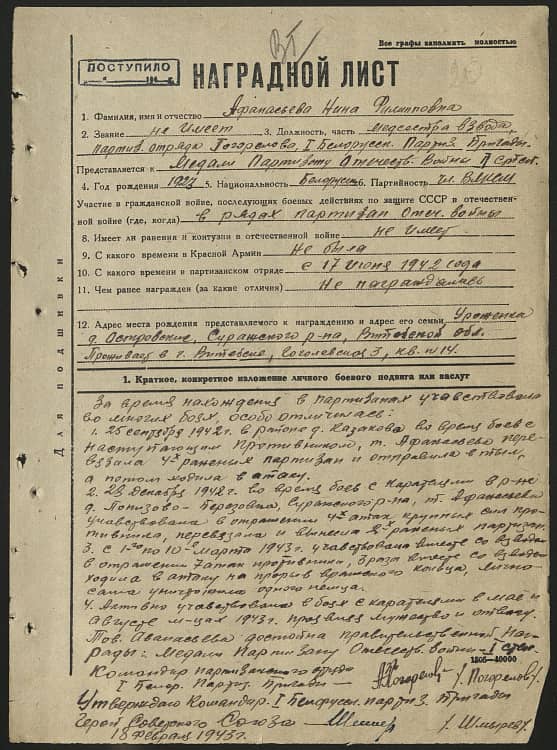 Все графы заполнить полностью
ВГ
ПОСТУПИЛО
НАГРАДНОЙ ЛИСТ
1. Фамилия, имя и отчество Афанасьева Нина Филипповна
2. Звание не имеет 3. Должность, часть медсестра взвода,
партиз. отряда Погорелова, I Белорусск. Партиз. Бригады
Представляется к Медали Партизану Отечеств. Войны
4. Год рождения 1923 5. Национальность Белоруска 6. Партийность чл. ВЛКСМ
Участие в гражданской войне, последующих боевых действиях по защите СССР в отечествен-
ной войне (где, когда) в рядах партизан Отеч. войны
8. Имеет ли ранения и контузии в отечественной войне не имеет
9. С какого времени в Красной Армии не была
10. С какого времени в партизанском отряде с 17 июня 1942 года
11. Чем ранее награжден (за какие отличия) не награждалась
12. Адрес места рождения представляемого к награждению и адрес его семьи Уроженка
д. Островские, Суражского р-на, Витебской обл.
Проживает в г. Витебске, 3, кв. №14.
Для подшивки
1. Краткое, конкретное изложение личного боевого подвига или заслуг
За время нахождения в партизанах учавствовала
во многих боях, особо отличилась:
1. 25 сентября 1942 г. в районе д. Казакова во время боев с
наступающим противником, т. Афанасьева пере-
вязала 4х раненых партизан и отправила в тыл,
а потом ходила в атаку.
2. 23 декабря 1942 г. во время боев с карателями в р-не
д. Березовка, Суражского р-на, т. Афанасьева
учавствовала в отражении 4х атак крупных сил про-
тивника, перевязала и вынесла 2х раненых партизан.
3. С 1го по 10е марта 1943 г. учавствовала вместе со взводом
в отражении 7 атак противника, 3 раза вместе со взводом
ходила в атаку на прорыв вражеского кольца, лично
сама уничтожила одного немца.
4. Активно учавствовала в боях с карателями в мае и
Августе м-цах 1943 г. проявляя мужество и отвагу.
Тов. Афанасьева достойна правительственной наг-
рады: медали Партизану Отечеств. Войны I степ.
1805—40000
Командир партизанского отряда
I Белор. Партиз. Бригады — Погорелов /Погорелов/
Утверждаю Командир I Белорусск. партиз. Бригады
Герой Советского Союза — /Шмырев/
18 февраля 1943 г.